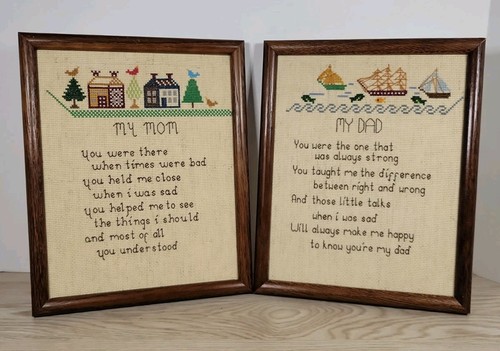 MY MOM
you were there
when times were bad
you held me close
when i was sad
you helped me to see
the things i should
and most of all
you understood
MY DAD
You were the one that
was always strong
You taught me the difference
between right and wrong
And those little talks
when i was sad
Will always make me happy
to know you're my dad